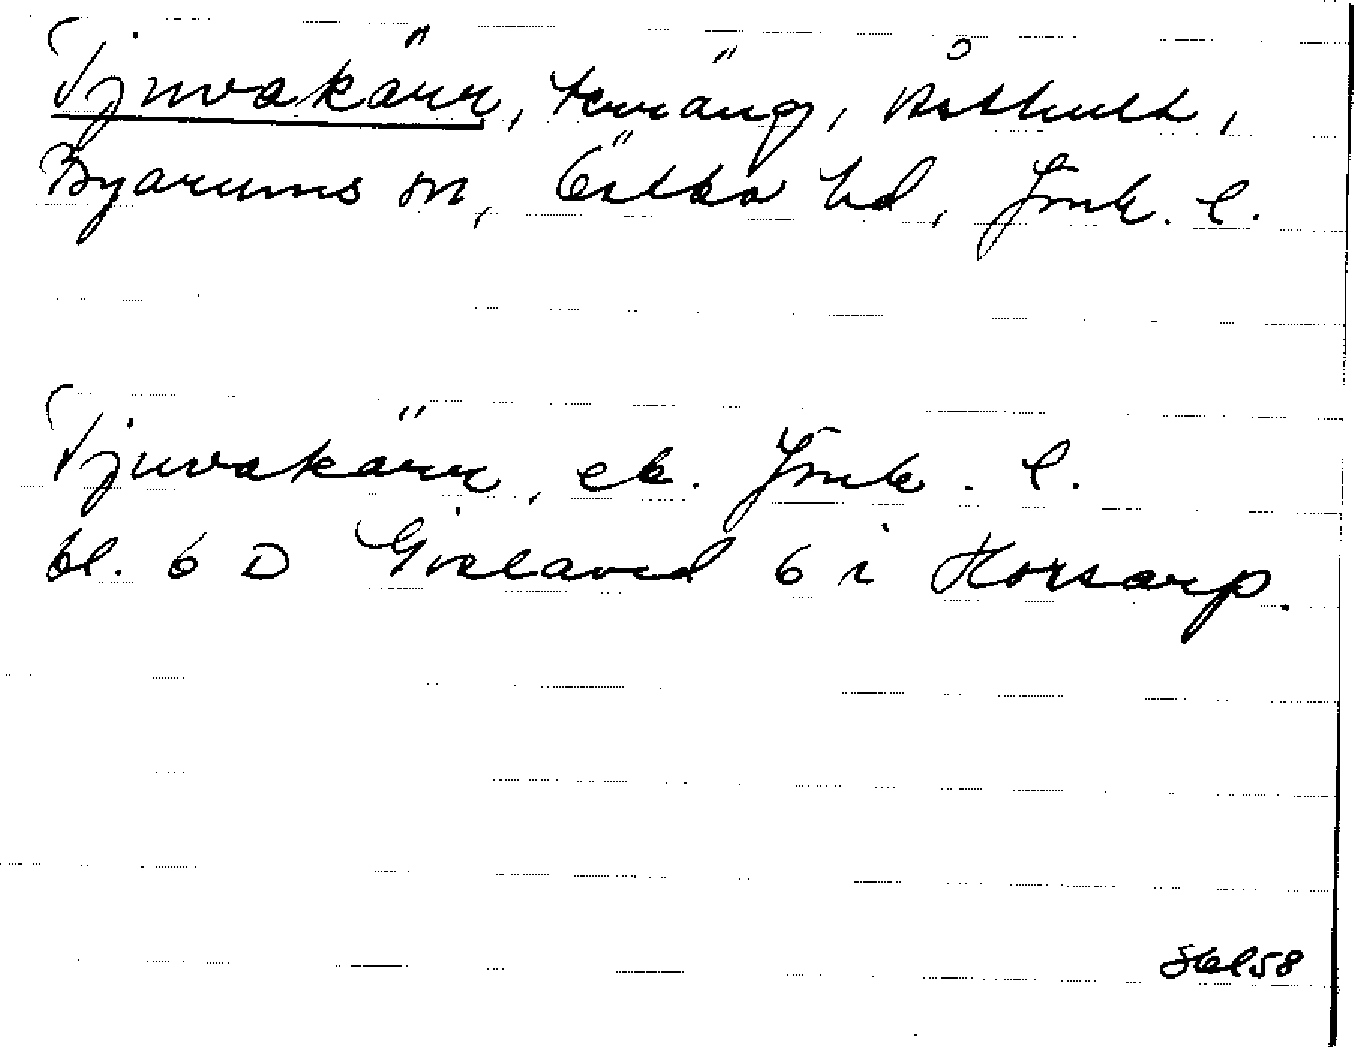 Tjuvakärr, terräng, Råsthult,
Byarums sn, Östbo hd, Jönk. l.
Tjuvakärr, ek. Jönk. l.
bl. 6 D Gislaved 6 i Horsarp.